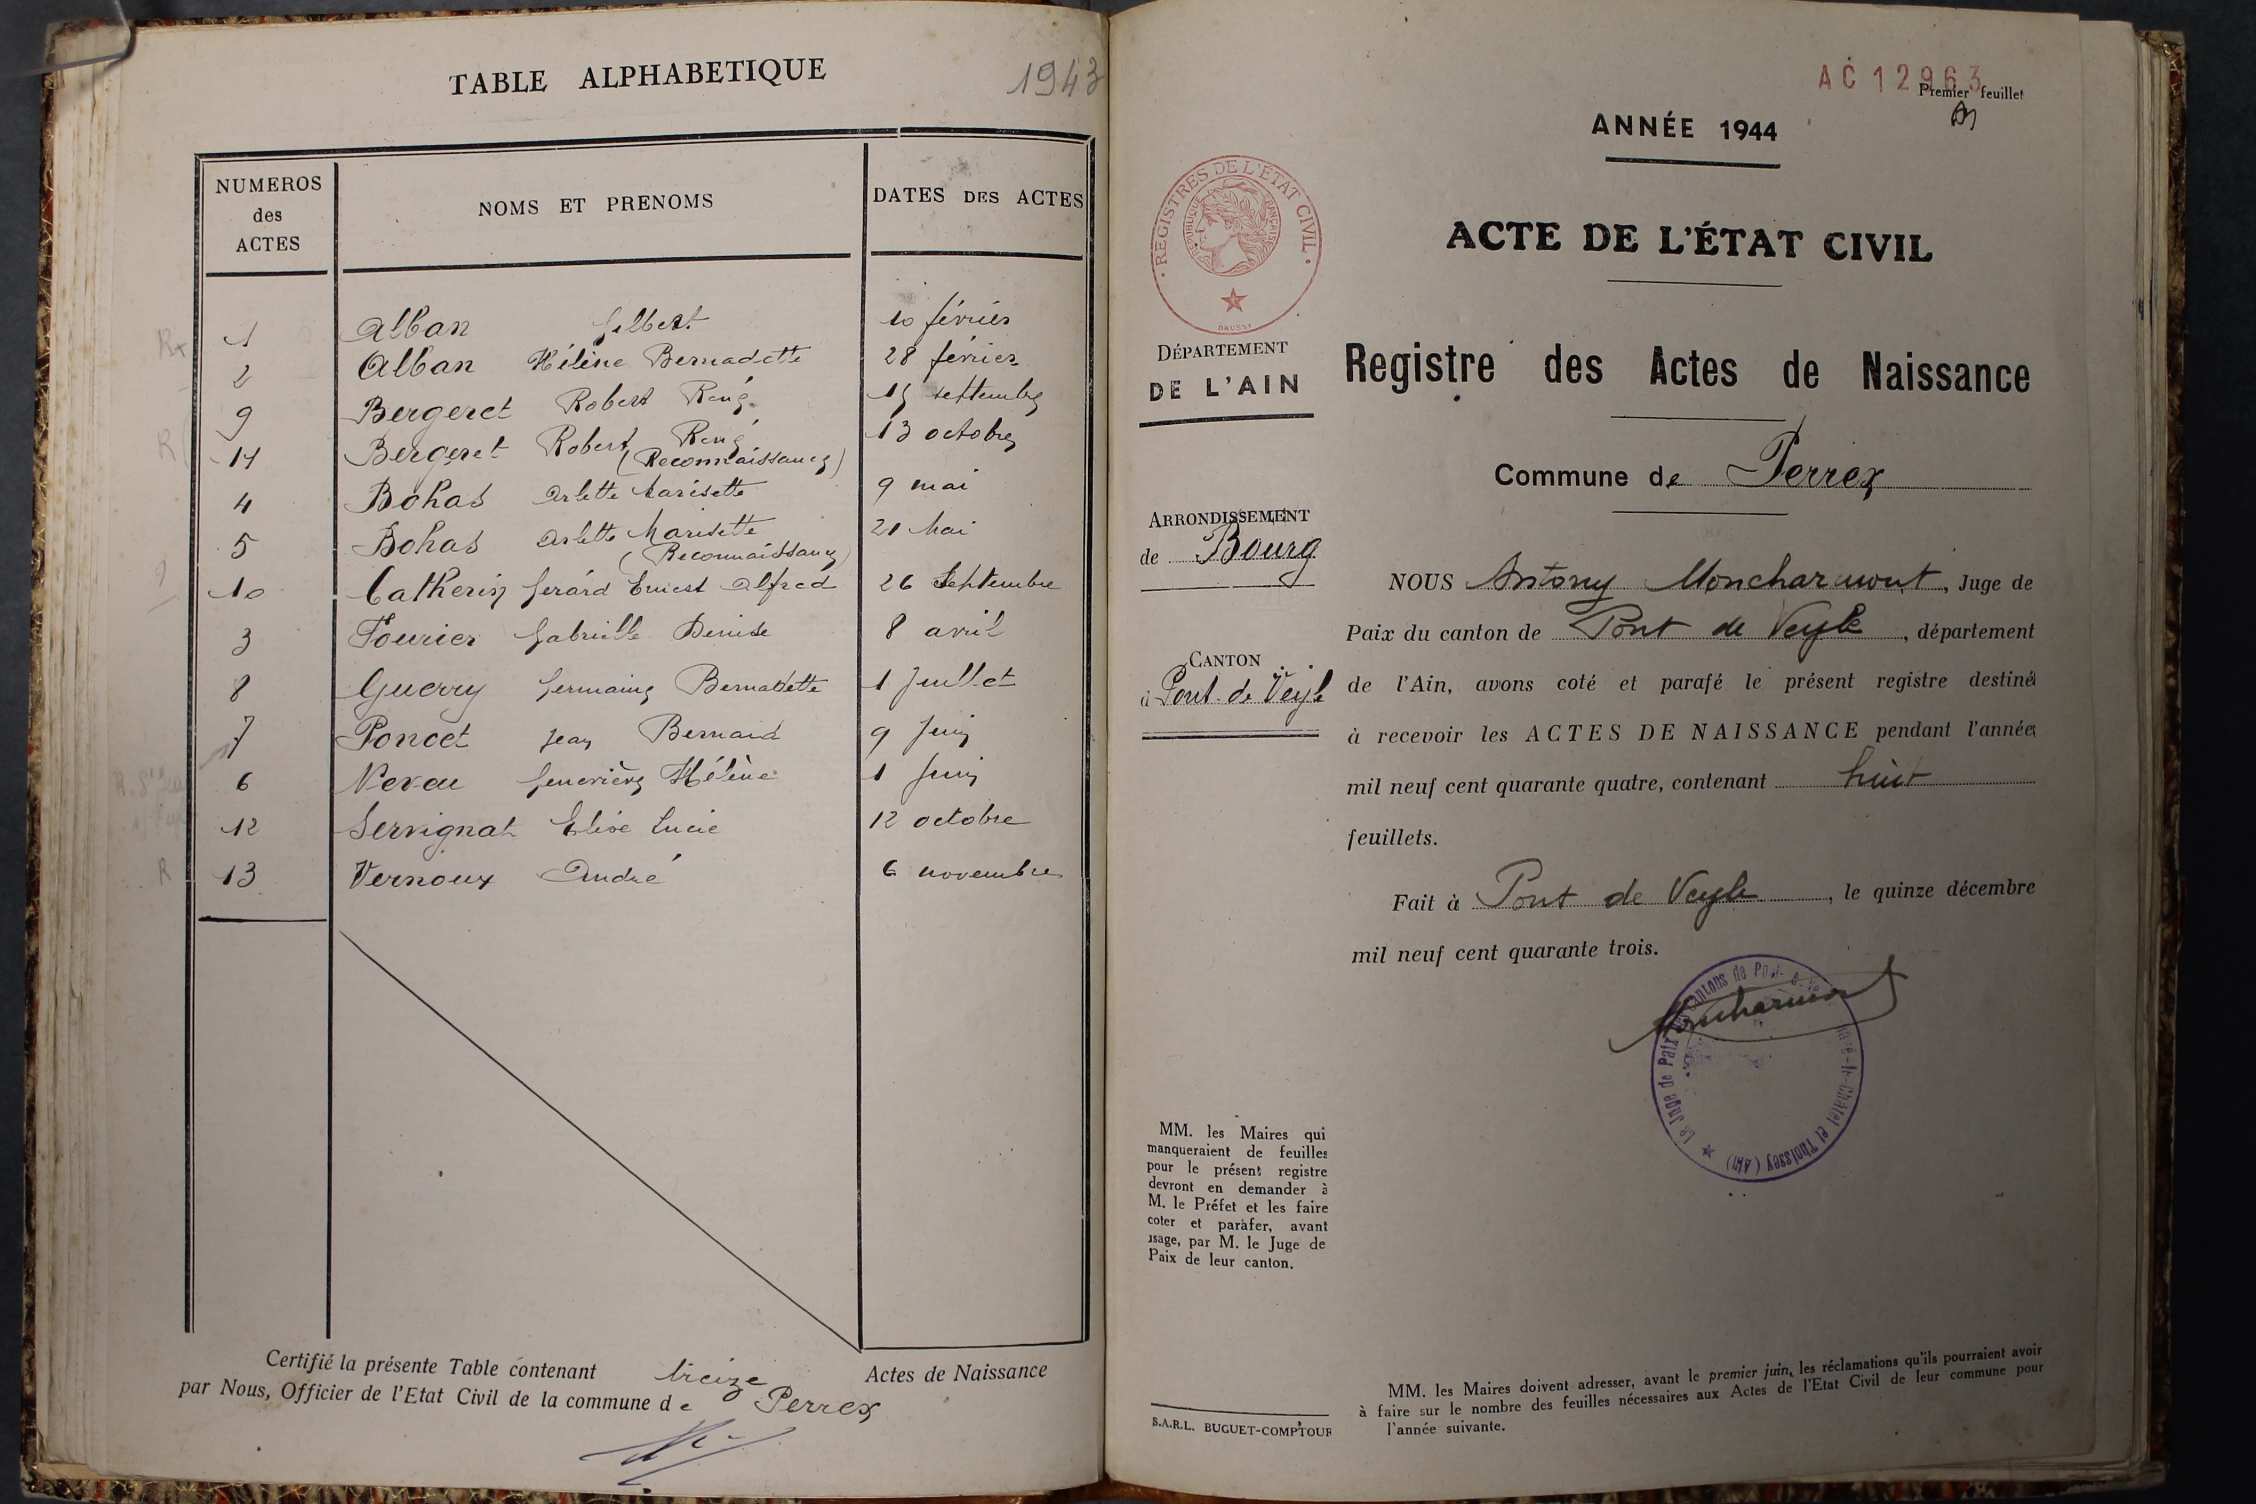 TABLE ALPHABETIQUE
1943
NUMEROS des ACTES
NOMS ET PRENOMS
DATES DES ACTES
1 Alban Gilbert 10 février
2 Alban Hélène Bernadette 28 février
9 Bergeret Robert René 15 septembre
11 Bergeret Robert René 13 octobre
(Reconnaissance)
4 Bohas Arlette Marisette 9 mai
5 Bohas Arlette Marisette 21 Mai
(Reconnaissance)
10 Catherin Gerárd Ernest Alfred 26 Septembre
3 Fourier Gabrielle Denise 8 avril
8 Guerry Germaine Bernadette 1 Juillet
7 Poncet Jean Bernard 9 Juin
6 Geneviève Hélène 1 Juin
12 Servignat Elise Lucie 12 octobre
R 13 Vernoux André 6 novembre
Certifié la présente Table contenant treize Actes de Naissance
par Nous, Officier de l'Etat Civil de la commune de Perrex
AC 12963
Premier feuillet
ANNÉE 1944
ACTE DE L'ÉTAT CIVIL
Registre des Actes de Naissance
Commune de Perrex
REGISTRES DE L'ETAT CIVIL
REPUBLIQUE FRANÇAISE
DÉPARTEMENT
DE L'AIN
ARRONDISSEMENT
de Bourg
CANTON
d Pont-de-Veyle
NOUS Antony Moncharmont, Juge de
Paix du canton de Pont de Veyle, département
de l'Ain, avons coté et parafé le présent registre destiné
à recevoir les ACTES DE NAISSANCE pendant l'année
mil neuf cent quarante quatre, contenant huit
feuillets.
Fait à Pont de Veyle, le quinze décembre
mil neuf cent quarante trois.
Moncharmont
Le Juge de Paix cantons de Pont-d -le-Châtel et Thoissey (AIN)
MM. les Maires qui
manqueraient de feuilles
pour le présent registre
devront en demander à
M. le Préfet et les faire
coter et parafer, avant
usage, par M. le Juge de
Paix de leur canton.
S.A.R.L. BUGUET-COMPTOUR
MM. les Maires doivent adresser, avant le premier juin, les réclamations qu'ils pourraient avoir
à faire sur le nombre des feuilles nécessaires aux Actes de l'Etat Civil de leur commune pour
l'année suivante.